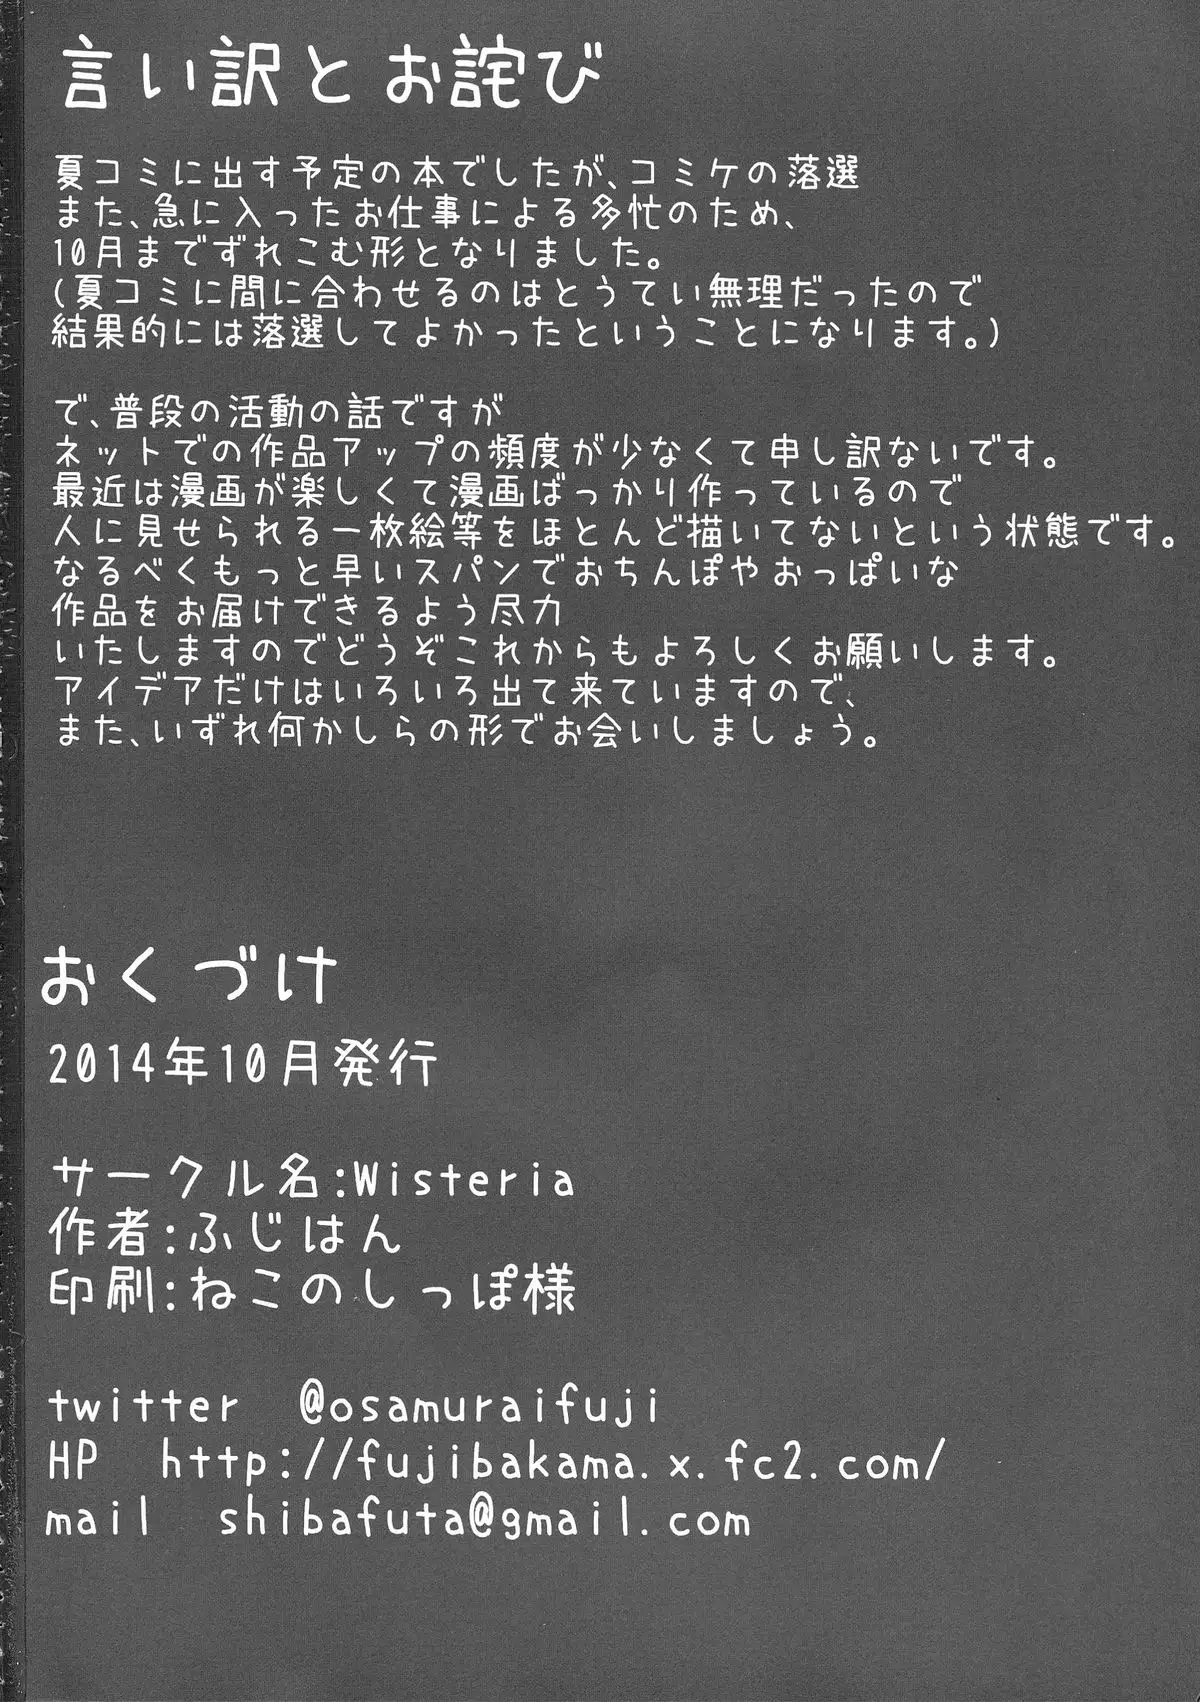 言い訳とお詫び
夏コミに出す予定の本でしたが、コミケの落選
また、急に入ったお仕事による多忙のため、
10月までずれこむ形となりました。
(夏コミに間に合わせるのはとうてい無理だったので
結果的には落選してよかったということになります。)
で、普段の活動の話ですが
ネットでの作品アップの頻度が少なくて申し訳ないです。
最近は漫画が楽しくて漫画ばっかり作っているので
人に見せられる一枚絵等をほとんど描いてないという状態です。
なるべくもっと早いスパンでおちんぽやおっぱいな
作品をお届けできるよう尽力
いたしますのでどうぞこれからもよろしくお願いします。
アイデアだけはいろいろ出て来ていますので、
また、いずれ何かしらの形でお会いしましょう。
おくづけ
2014年10月発行
サークル名:Wisteria
作者:ふじはん
印刷:ねこのしっぽ様
twitter @osamuraifuji
HP http://fujibakama.x.fc2.com/
mail shibafuta@gmail.com